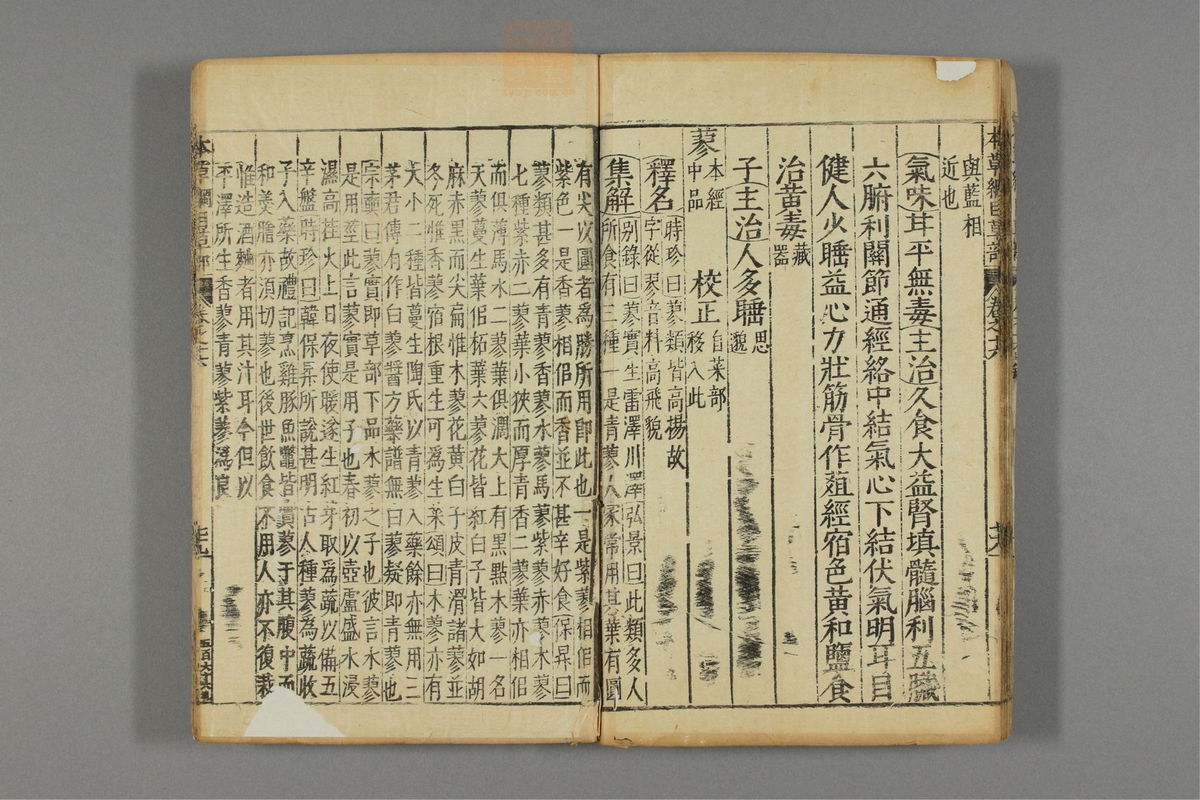 與藍相
近也
氣味甘平無毒主治久食大益腎填髓腦利五臟
六腑利關節通經絡中結氣心下結伏氣明耳目
健人少睡益心力壯筋骨作葅經宿色黃和鹽食
治黃毒藏器
子主治人多睡思邈
蓼本經中品 校正自菜部移入此
釋名時珍曰蓼類皆高揚故
字從翏音料高飛貌
集解别錄曰蓼實生雷澤川澤弘景曰此類多人
所食有三種一是青蓼人家常用其葉有圓
有尖以圓者為勝所用即此也一是紫蓼相佀而
紫色一是香蓼相佀而香並不甚辛好食保昇曰
蓼類甚多有青蓼香蓼水蓼馬蓼紫蓼赤蓼木蓼
七種紫赤二蓼葉小狹而厚青香二蓼葉亦相佀
而俱薄馬水二蓼葉俱濶大上有黑點木蓼一名
天蓼蔓生葉佀柘葉六蓼花皆紅白子皆大如胡
麻赤黑而尖扁惟木蓼花黃白子皮青滑諸蓼並
冬死惟香蓼宿根重生可為生菜頌曰木蓼亦有
大小二種皆蔓生陶氏以青蓼入藥餘亦無用三
茅君傳有作白蓼醬方藥譜無白蓼疑即青蓼也
宗奭曰蓼實即草部下品水蓼之子也彼言水蓼
是用莖此言蓼實是用子也春初以壺盧盛水浸
濕高挂火上日夜使暖遂生紅芽取為蔬以備五
辛盤時珍曰韓保昇所說甚明古人種蓼為蔬收
子入藥故禮記烹雞豚魚鱉皆實蓼于其腹中而
和羹膾亦須切蓼也後世飲食不用人亦不復栽
惟造酒麴者用其汁耳今但以
平澤所生香蓼青蓼紫蓼為良